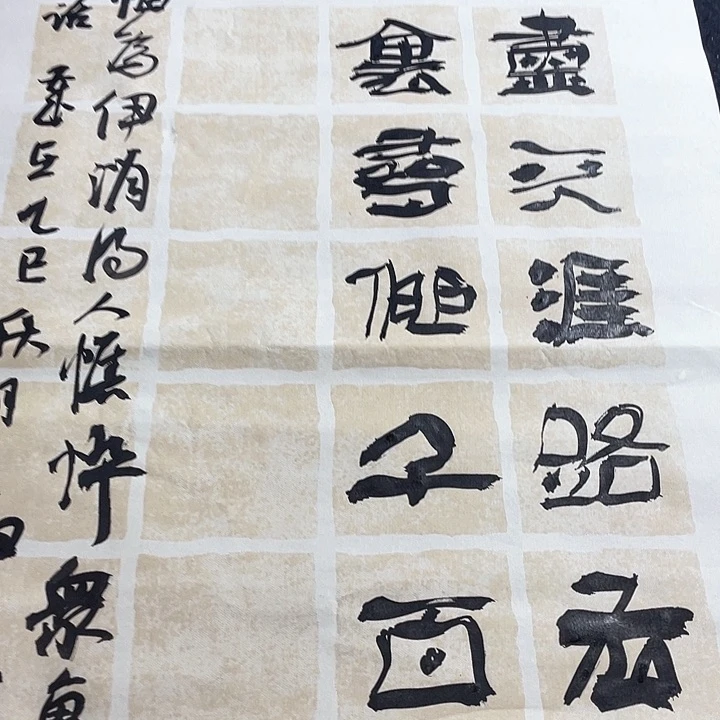 盡天涯路
裏尋他千百
悔為伊消得人憔悴眾
话歲在乙巳秋月